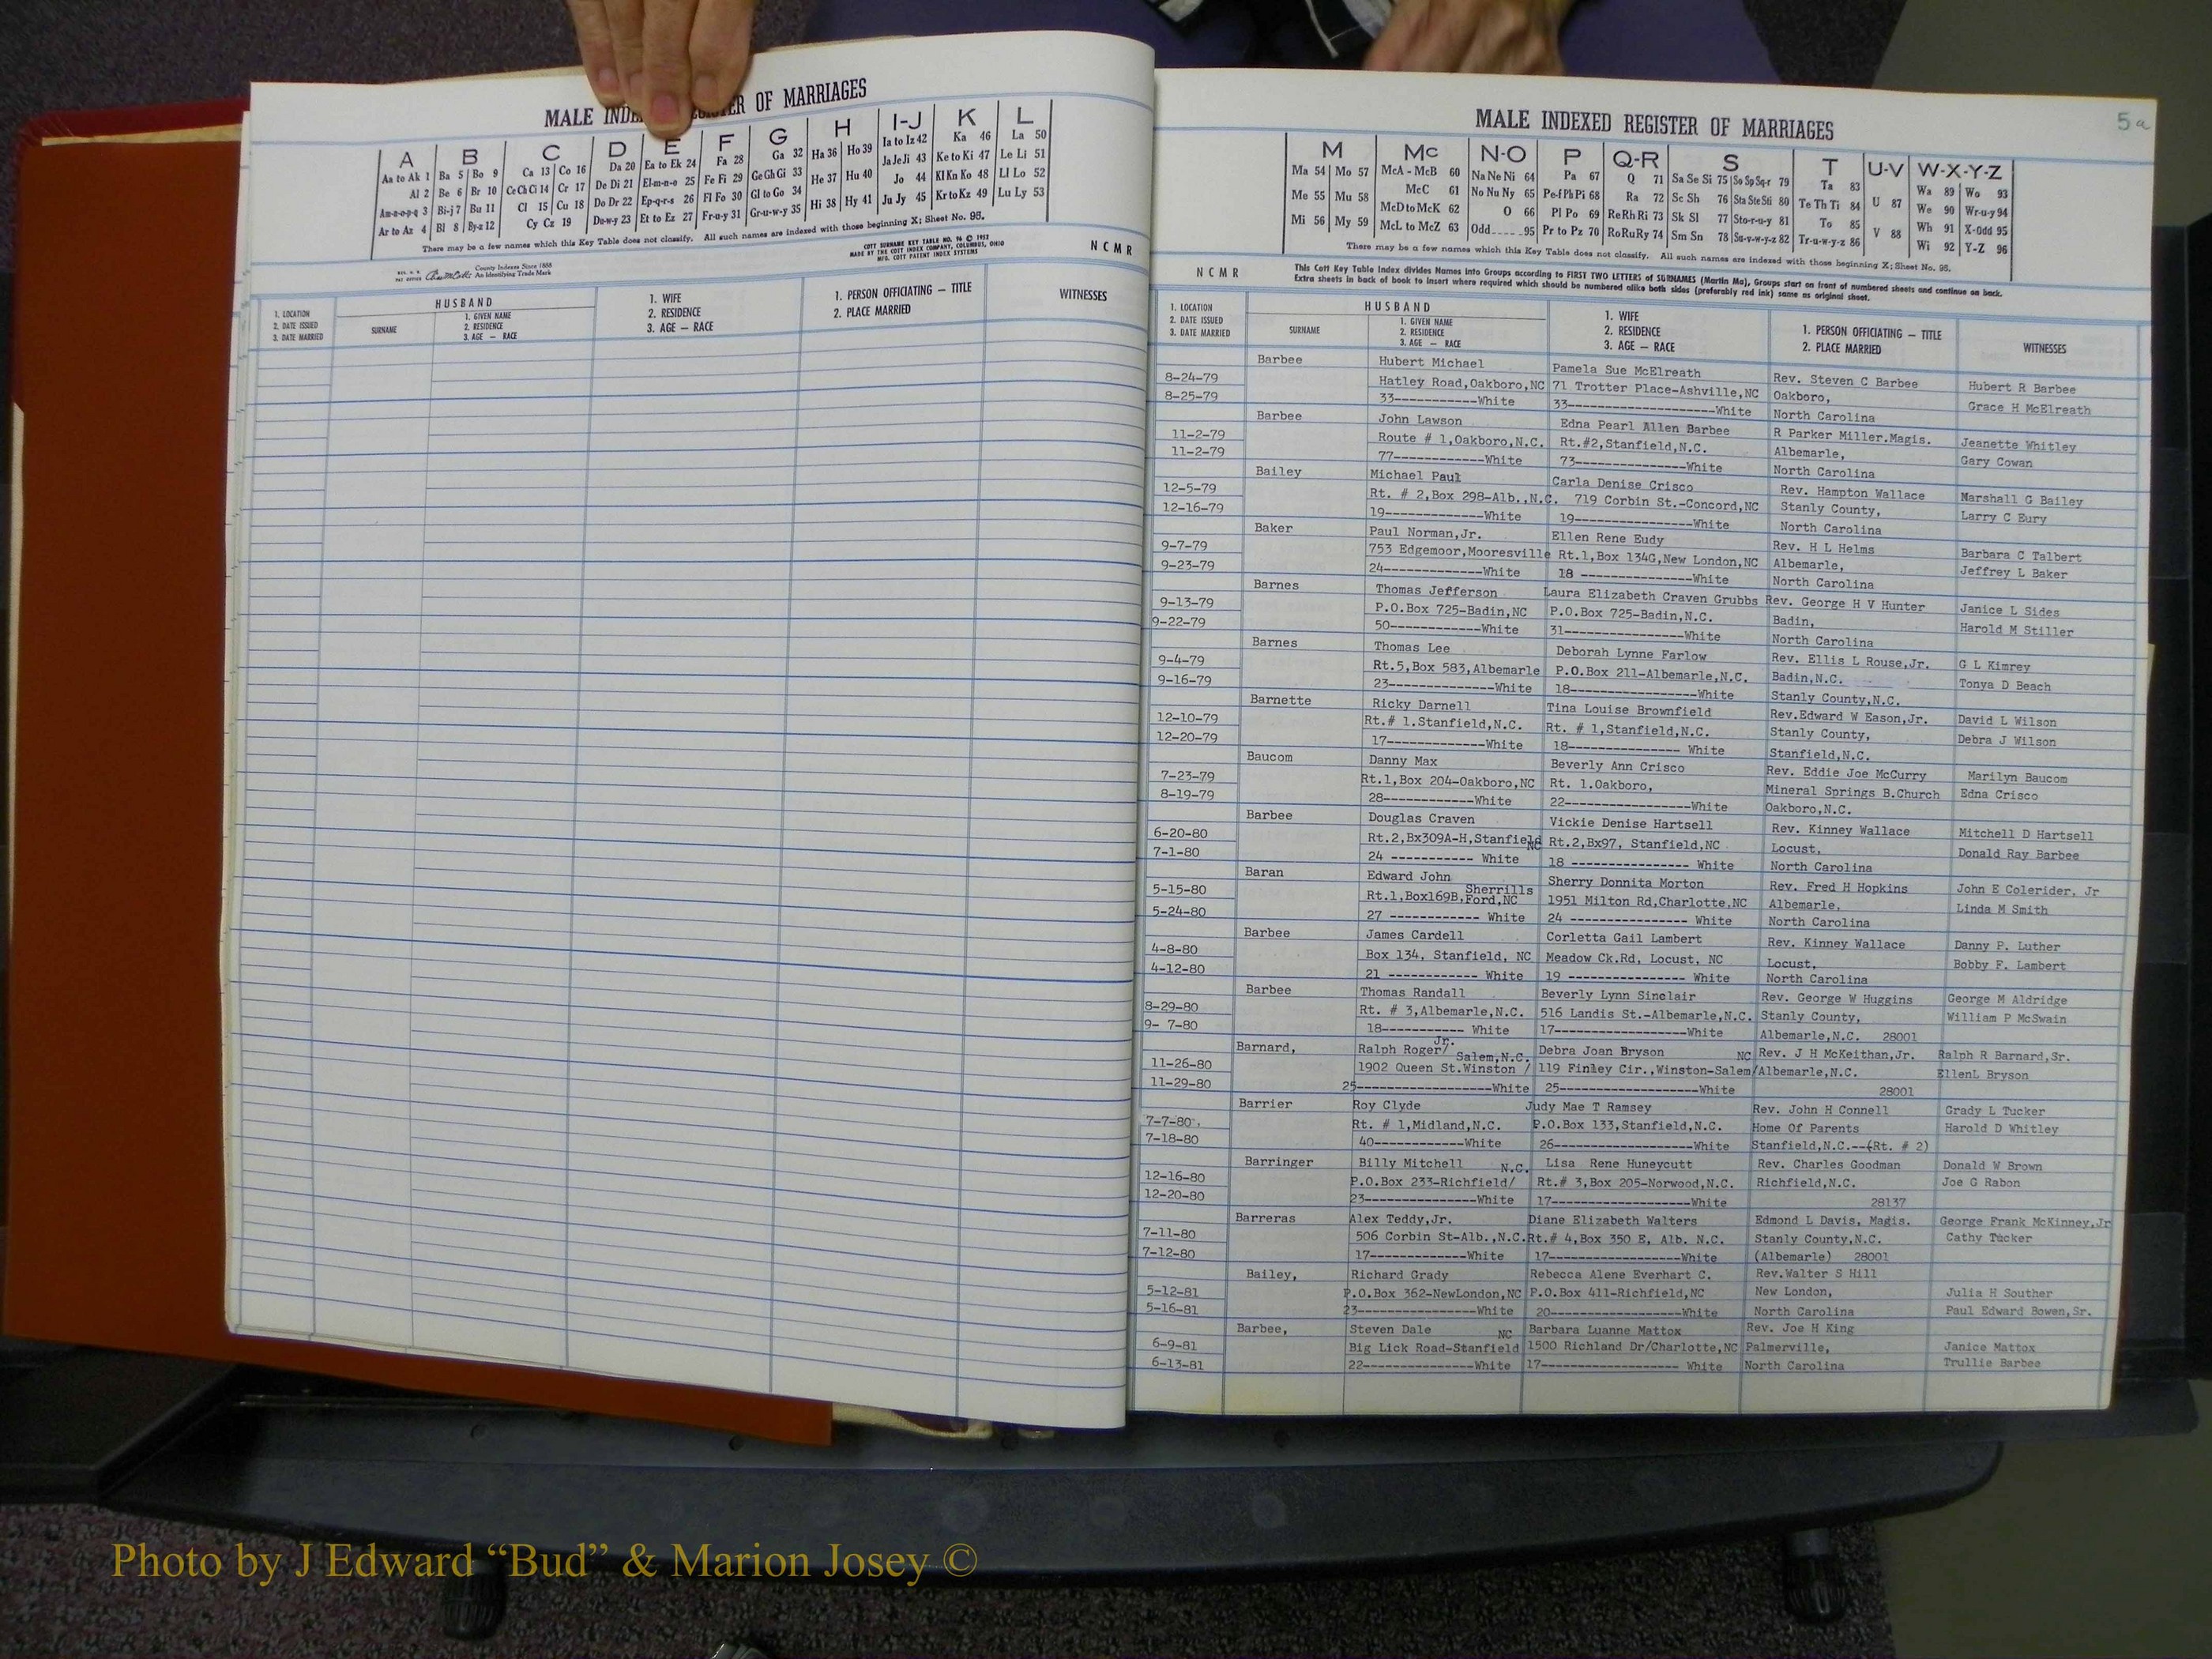 MALE INDE REGISTER OF MARRIAGES
A B C D E F G H I-J K L
Aa to Ak 1 Ba 5 Bo 9 Ca 13 Co 16 Da 20 Ea to Ek 24 Fa 28 Ga 32 Ha 36 Ho 39 Ia to Iz 42 Ka 46 La 50
Al 2 Be 6 Br 10 Ce Ch Ci 14 Cr 17 De Di 21 El-m-n-o 25 Fe Fi 29 Ge Gh Gi 33 He 37 Hu 40 Ja Je Ji 43 Ke to Ki 47 Le Li 51
Am-n-o-p-q 3 Bi-j 7 Bu 11 Cl 15 Cu 18 Do Dr 22 Ep-q-r-s 26 Fl Fo 30 Gl to Go 34 Hi 38 Hy 41 Jo 44 Kl Kn Ko 48 Ll Lo 52
Ar to Az 4 Bl 8 By-z 12 Cy Cz 19 Du-w-y 23 Et to Ez 27 Fr-u-y 31 Gr-u-w-y 35 Ju Jy 45 Kr to Kz 49 Lu Ly 53
There may be a few names which this Key Table does not classify. All such names are indexed with those beginning X; Sheet No. 95.
COTT SURNAME KEY TABLE NO. 96 © 1952
MADE BY THE COTT INDEX COMPANY, COLUMBUS, OHIO
MFG. COTT PATENT INDEX SYSTEMS
N C M R
County Indexes Since 1888
An Identifying Trade Mark
HUSBAND
1. LOCATION
2. DATE ISSUED
3. DATE MARRIED
SURNAME
1. GIVEN NAME
2. RESIDENCE
3. AGE — RACE
1. WIFE
2. RESIDENCE
3. AGE — RACE
1. PERSON OFFICIATING — TITLE
2. PLACE MARRIED
WITNESSES
5a
MALE INDEXED REGISTER OF MARRIAGES
M Mc N-O P Q-R S T U-V W-X-Y-Z
Ma 54 Mo 57 McA - McB 60 Na Ne Ni 64 Pa 67 Q 71 Sa Se Si 75 So Sp Sq-r 79 Ta 83 U 87 Wa 89 Wo 93
Me 55 Mu 58 McC 61 No Nu Ny 65 Pe-f Ph Pi 68 Ra 72 Sc Sh 76 Sta Ste Sti 80 Te Th Ti 84 V 88 We 90 Wr-u-y 94
Mi 56 My 59 McD to McK 62 O 66 Pl Po 69 Re Rh Ri 73 Sk Sl 77 Sto-r-u-y 81 To 85 Wh 91 X-Odd 95
McL to McZ 63 Odd 95 Pr to Pz 70 Ro Ru Ry 74 Sm Sn 78 Su-v-w-y-z 82 Tr-u-w-y-z 86 Wi 92 Y-Z 96
There may be a few names which this Key Table does not classify. All such names are indexed with those beginning X; Sheet No. 95.
N C M R
This Cott Key Table Index divides Names into Groups according to FIRST TWO LETTERS of SURNAMES (Martin Ma), Groups start on front of numbered sheets and continue on back.
Extra sheets in back of book to insert where required which should be numbered alike both sides (preferably red ink) same as original sheet.
HUSBAND
1. LOCATION
2. DATE ISSUED
3. DATE MARRIED
SURNAME
1. GIVEN NAME
2. RESIDENCE
3. AGE — RACE
1. WIFE
2. RESIDENCE
3. AGE — RACE
1. PERSON OFFICIATING — TITLE
2. PLACE MARRIED
WITNESSES
Barbee Hubert Michael Pamela Sue McElreath Rev. Steven C Barbee Hubert R Barbee
8-24-79 Hatley Road,Oakboro,NC 71 Trotter Place-Ashville,NC Oakboro, Grace H McElreath
8-25-79 33------------White 33---------------------White North Carolina
Barbee John Lawson Edna Pearl Allen Barbee R Parker Miller.Magis. Jeanette Whitley
11-2-79 Route # 1,Oakboro,N.C. Rt.#2,Stanfield,N.C. Albemarle, Gary Cowan
11-2-79 77-------------White 73----------------White North Carolina
Bailey Michael Paul Carla Denise Crisco Rev. Hampton Wallace Marshall G Bailey
12-5-79 Rt. # 2,Box 298-Alb.,N.C. 719 Corbin St.-Concord,NC Stanly County, Larry C Eury
12-16-79 19-------------White 19-----------------White North Carolina
Baker Paul Norman,Jr. Ellen Rene Eudy Rev. H L Helms Barbara C Talbert
9-7-79 753 Edgemoor,Mooresville Rt.1,Box 134G,New London,NC Albemarle, Jeffrey L Baker
9-23-79 24-------------White 18 ----------------White North Carolina
Barnes Thomas Jefferson Laura Elizabeth Craven Grubbs Rev. George H V Hunter Janice L Sides
9-13-79 P.O.Box 725-Badin,NC P.O.Box 725-Badin,N.C. Badin, Harold M Stiller
9-22-79 50------------White 31-----------------White North Carolina
Barnes Thomas Lee Deborah Lynne Farlow Rev. Ellis L Rouse,Jr. G L Kimrey
9-4-79 Rt.5,Box 583,Albemarle P.O.Box 211-Albemarle,N.C. Badin,N.C. Tonya D Beach
9-16-79 23--------------White 18------------------White Stanly County,N.C.
Barnette Ricky Darnell Tina Louise Brownfield Rev.Edward W Eason,Jr. David L Wilson
12-10-79 Rt.# 1.Stanfield,N.C. Rt. # 1,Stanfield,N.C. Stanly County, Debra J Wilson
12-20-79 17-------------White 18--------------- White Stanfield,N.C.
Baucom Danny Max Beverly Ann Crisco Rev. Eddie Joe McCurry Marilyn Baucom
7-23-79 Rt.1,Box 204-Oakboro,NC Rt. 1.Oakboro, Mineral Springs B.Church Edna Crisco
8-19-79 28------------White 22-----------------White Oakboro,N.C.
Barbee Douglas Craven Vickie Denise Hartsell Rev. Kinney Wallace Mitchell D Hartsell
6-20-80 Rt.2,Bx309A-H,Stanfield NC Rt.2,Bx97, Stanfield,NC Locust, Donald Ray Barbee
7-1-80 24 ----------- White 18 ---------------- White North Carolina
Baran Edward John Sherry Donnita Morton Rev. Fred H Hopkins John E Colerider, Jr
5-15-80 Rt.1,Box169B,Sherrills Ford,NC 1951 Milton Rd,Charlotte,NC Albemarle, Linda M Smith
5-24-80 27 ------------ White 24 ---------------- White North Carolina
Barbee James Cardell Corletta Gail Lambert Rev. Kinney Wallace Danny P. Luther
4-8-80 Box 134, Stanfield, NC Meadow Ck.Rd, Locust, NC Locust, Bobby F. Lambert
4-12-80 21 ------------ White 19 ---------------- White North Carolina
Barbee Thomas Randall Beverly Lynn Sinclair Rev. George W Huggins George M Aldridge
8-29-80 Rt. # 3,Albemarle,N.C. 516 Landis St.-Albemarle,N.C. Stanly County, William P McSwain
9- 7-80 18----------- White 17------------------White Albemarle,N.C. 28001
Barnard, Ralph Roger/ Jr. Debra Joan Bryson Rev. J H McKeithan,Jr. Ralph R Barnard,Sr.
11-26-80 1902 Queen St.Winston / Salem,N.C. 119 Finley Cir.,Winston-Salem/ NC Albemarle,N.C. EllenL Bryson
11-29-80 25------------------White 25-------------------White 28001
Barrier Roy Clyde Judy Mae T Ramsey Rev. John H Connell Grady L Tucker
7-7-80 Rt. # 1,Midland,N.C. P.O.Box 133,Stanfield,N.C. Home Of Parents Harold D Whitley
7-18-80 40------------White 26-------------------White Stanfield,N.C.--(Rt. # 2)
Barringer Billy Mitchell Lisa Rene Huneycutt Rev. Charles Goodman Donald W Brown
12-16-80 P.O.Box 233-Richfield/ N.C. Rt.# 3,Box 205-Norwood,N.C. Richfield,N.C. Joe G Rabon
12-20-80 23----------------White 17------------------White 28137
Barreras Alex Teddy,Jr. Diane Elizabeth Walters Edmond L Davis, Magis. George Frank McKinney,Jr
7-11-80 506 Corbin St-Alb.,N.C. Rt.# 4,Box 350 E, Alb. N.C. Stanly County,N.C. Cathy Tucker
7-12-80 17-------------White 17------------------White (Albemarle) 28001
Bailey, Richard Grady Rebecca Alene Everhart C. Rev.Walter S Hill
5-12-81 P.O.Box 362-NewLondon,NC P.O.Box 411-Richfield,NC New London, Julia H Souther
5-16-81 23----------------White 20-----------------White North Carolina Paul Edward Bowen,Sr.
Barbee, Steven Dale Barbara Luanne Mattox Rev. Joe H King
6-9-81 Big Lick Road-Stanfield NC 1500 Richland Dr/Charlotte,NC Palmerville, Janice Mattox
6-13-81 22---------------White 17------------------- White North Carolina Trullie Barbee
Photo by J Edward “Bud” & Marion Josey ©